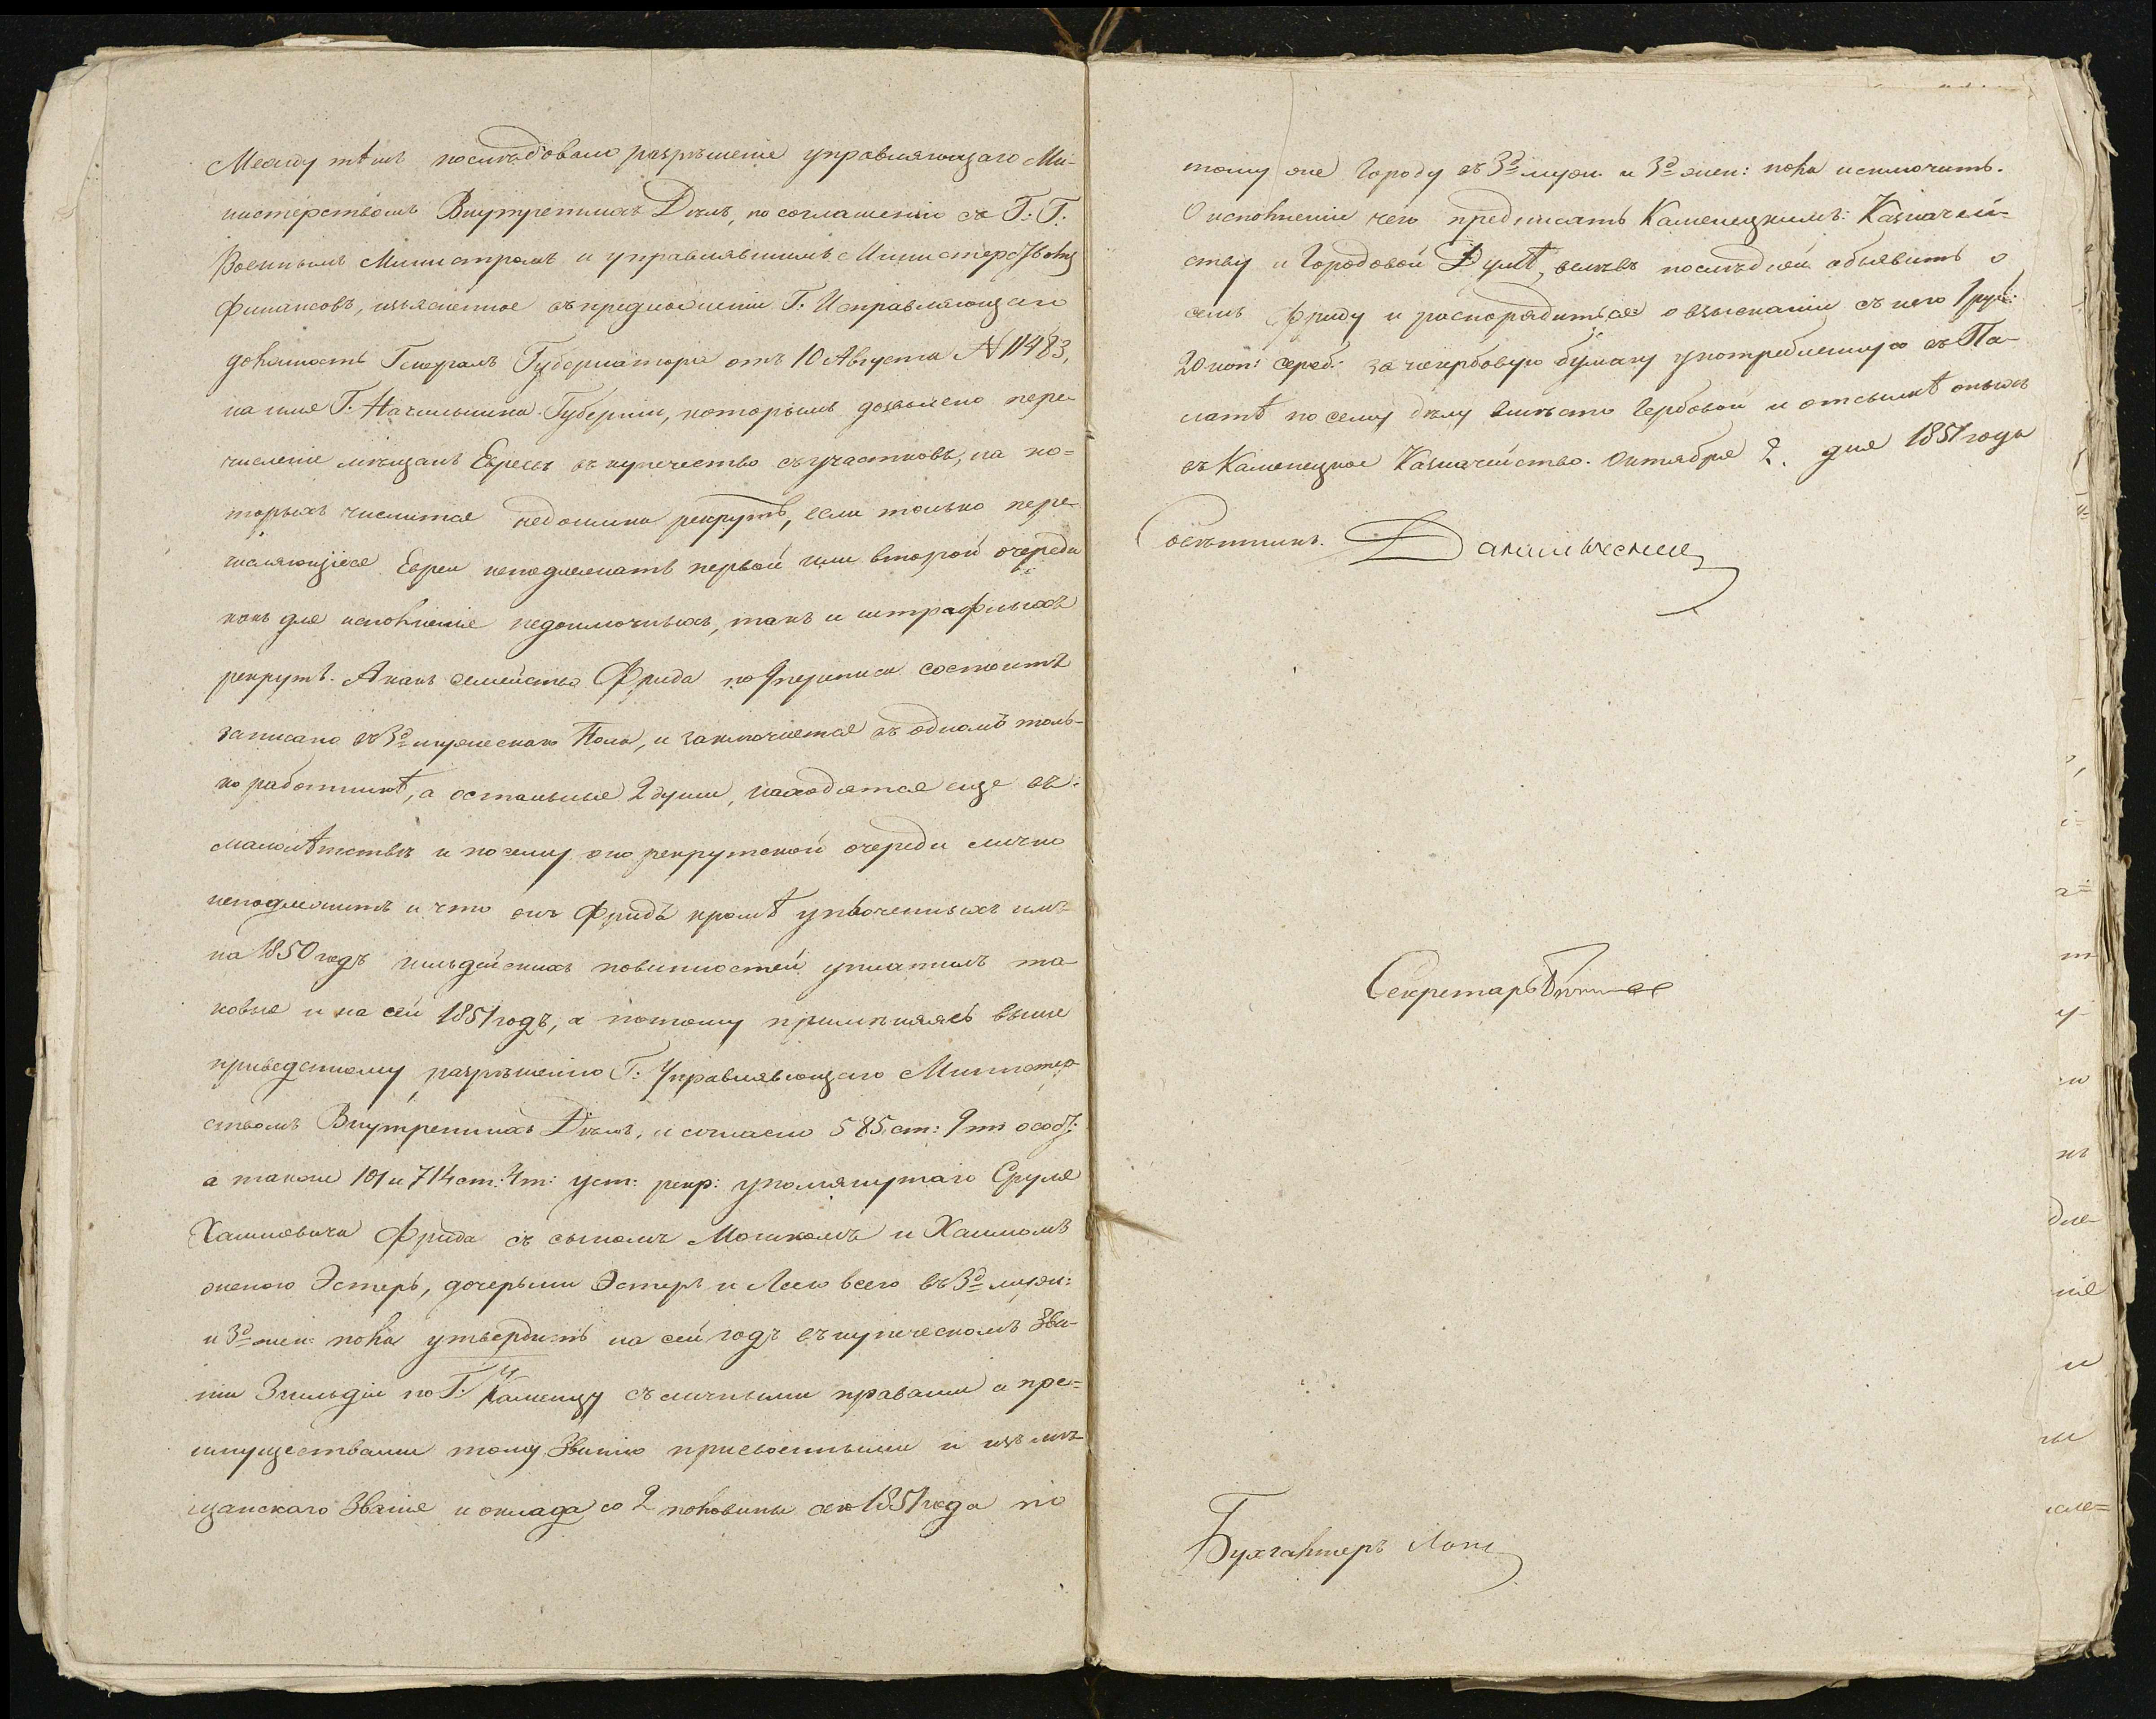 Между тѣмъ послѣдовало разрѣшеніе управляющаго Ми-
нистерствомъ Внутреннихъ Дѣлъ, по соглашенію съ Г: Г.
Военнымъ Министромъ и управлявшимъ Министерствомъ
Финансовъ, изъясненное въ предложеніи Г. Исправляющаго
должность Генералъ Губернатора отъ 10 Августа N 11483,
на имя Г. Начальника Губерніи, которымъ дозволено пере-
численіе мѣщанъ Евреевъ въ купечество съ участковъ, на ко=
торыхъ числится недоимка рекрутъ, если только пере-
числяющіеся Евреи неподлежатъ первой или второй очереди
какъ для исполненія недоимочныхъ, такъ и штрафныхъ
рекрутъ. А какъ семейство Фрида по 9 переписи состоитъ
записано въ 3^х мужескаго пола, и заключается въ одномъ толь-
ко работникѣ, а остальные 2 души, находятся еще въ
малолѣтствѣ и посему оно рекрутской очереди лично
неподлежитъ и что онъ Фридъ кромѣ уплоченныхъ имъ
на 1850 годъ гильдейскихъ повинностей уплатилъ та-
ковые и на сей 1851 годъ, а потому примѣняясь выше
приведенному разрѣшенію Г: Управляющаго Министер-
ствомъ Внутреннихъ Дѣлъ, и согласно 585 ст: 9 т: о сост:
а также 101 и 714 ст: 4 т: уст: рекр: упомянутаго Сруля
Хаимовича Фрида съ сыномъ Мошкомъ и Хаимомъ
женою Эстеръ, дочерьми Эстеръ и Леею всего въ 3^х муж:
и 3^х жен: пола утвердить на сей годъ въ купеческомъ Зва-
ніи 3 гильдіи по Г. Каменцу съ личными правами и пре=
имуществами тому Званію присвоенными и изъ мѣ-
щанскаго Званія и оклада со 2 половины сего 1851 года по
тому же Городу въ 3^х муж: и 3^х жен: пола исключить.
О исполненіи чего предписать Каменецкимъ: Казначей-
ству и Городовой Думѣ, велѣвъ послѣдней объявить о
семъ Фриду и распорядиться о взысканіи съ него 1 руб:
20 коп: сереб: за негербовую бумагу употребленную въ Па-
латѣ по сему дѣлу вмѣсто Гербовой и отсылкѣ оныхъ
въ Каменецкое Казначейство. Октября 2. дня 1851 года
Совѣтникъ.
Секретарь
Бухгалтеръ